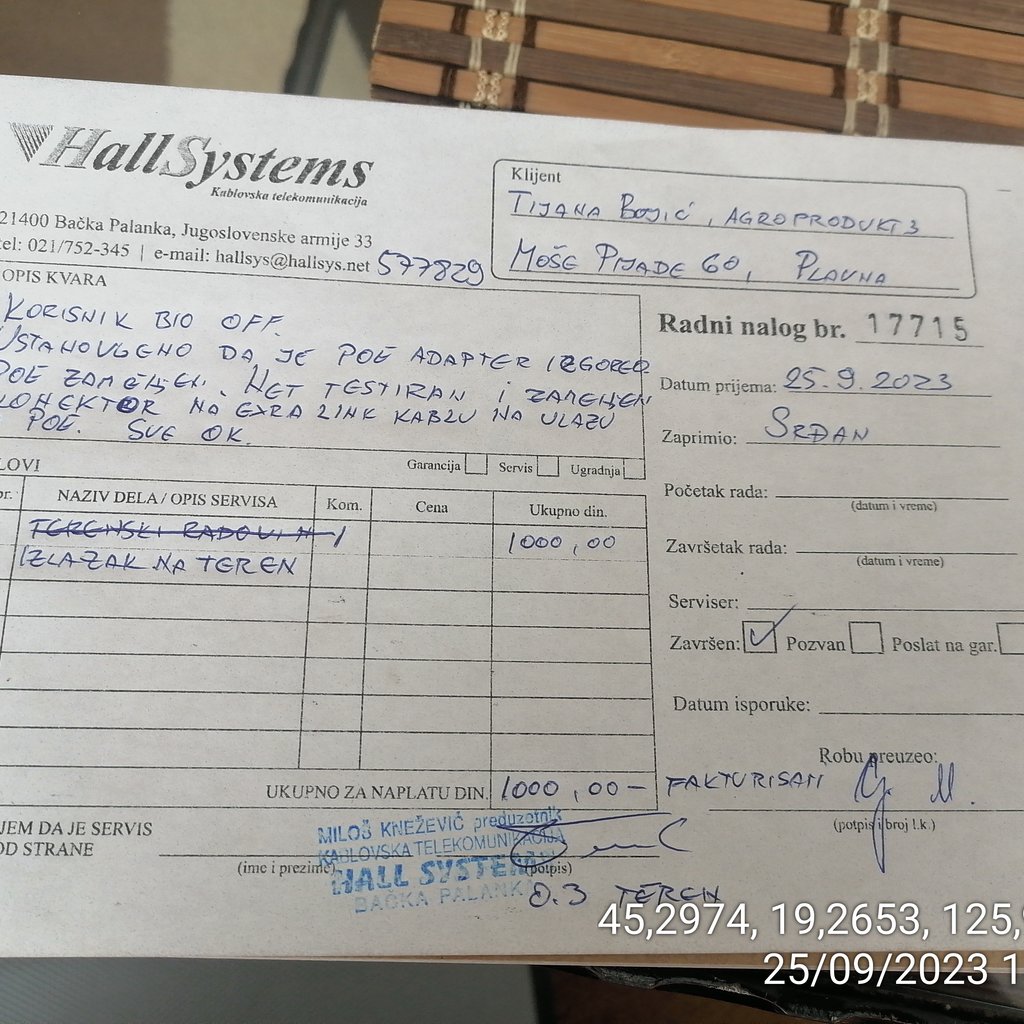 HallSystems
Kablovska telekomunikacija
21400 Bačka Palanka, Jugoslovenske armije 33
tel: 021/752-345 | e-mail: hallsys@hallsys.net
577829
Klijent
TIJANA BOJIĆ, AGROPRODUKT 3
MOŠE PIJADE 60, PLAVNA
OPIS KVARA
KORISNIK BIO OFF.
USTANOVLJENO DA JE POE ADAPTER IZGOREO
POE ZAMENJEN. NET TESTIRAN I ZAMENJEN
KONEKTOR NA EXRA LINK KABLU NA ULAZU
POE. SVE OK.
Radni nalog br. 17715
Datum prijema: 25.9.2023
Zaprimio: SRĐAN
Početak rada:
(datum i vreme)
Završetak rada:
(datum i vreme)
Serviser:
Završen: Pozvan Poslat na gar.
Datum isporuke:
Robu preuzeo:
(potpis i broj l.k.)
LOVI
Garancija Servis Ugradnja
br. NAZIV DELA / OPIS SERVISA Kom. Cena Ukupno din.
TERENSKI RADOVI 1000,00
IZLAZAK NA TEREN
UKUPNO ZA NAPLATU DIN. 1000,00- FAKTURISAN
JEM DA JE SERVIS
OD STRANE
(ime i prezime) (potpis)
MILOŠ KNEŽEVIĆ preduzetnik
KABLOVSKA TELEKOMUNIKACIJA
HALL SYSTEM
BAČKA PALANKA
O.3 TEREN
45,2974, 19,2653, 125,
25/09/2023 1